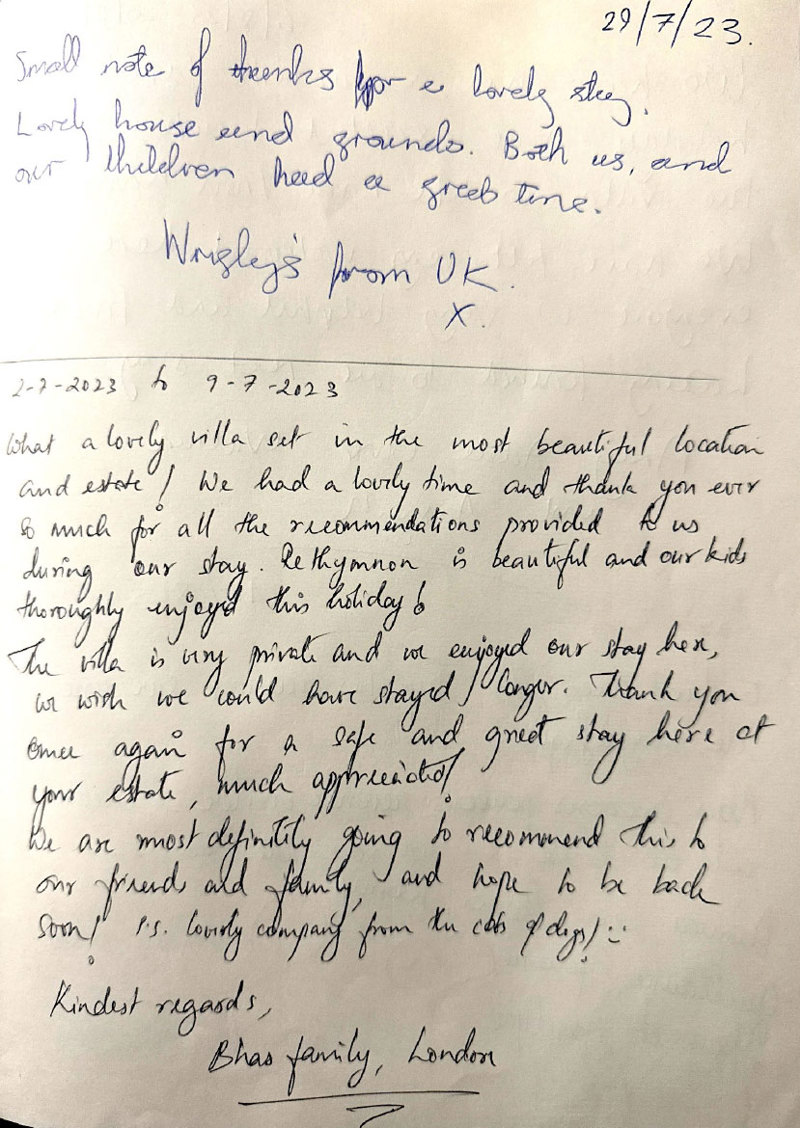 29/7/23.
Small note of thanks for a lovely stay.
Lovely house and grounds. Both us, and
our children had a great time.
Wrigley's from UK.
X.
2-7-2023 to 9-7-2023
What a lovely villa set in the most beautiful location
and estate! We had a lovely time and thank you ever
so much for all the recommendations provided to us
during our stay. Rethymnon is beautiful and our kids
thoroughly enjoyed this holiday!
The villa is very private and we enjoyed our stay here,
we wish we could have stayed longer. Thank you
once again for a safe and great stay here at
your estate, much appreciated!
We are most definitily going to recommend this to
our friends and family, and hope to be back
soon! P.S. lovely company from the cats & dogs! :-)
Kindest regards,
Bhas family, London